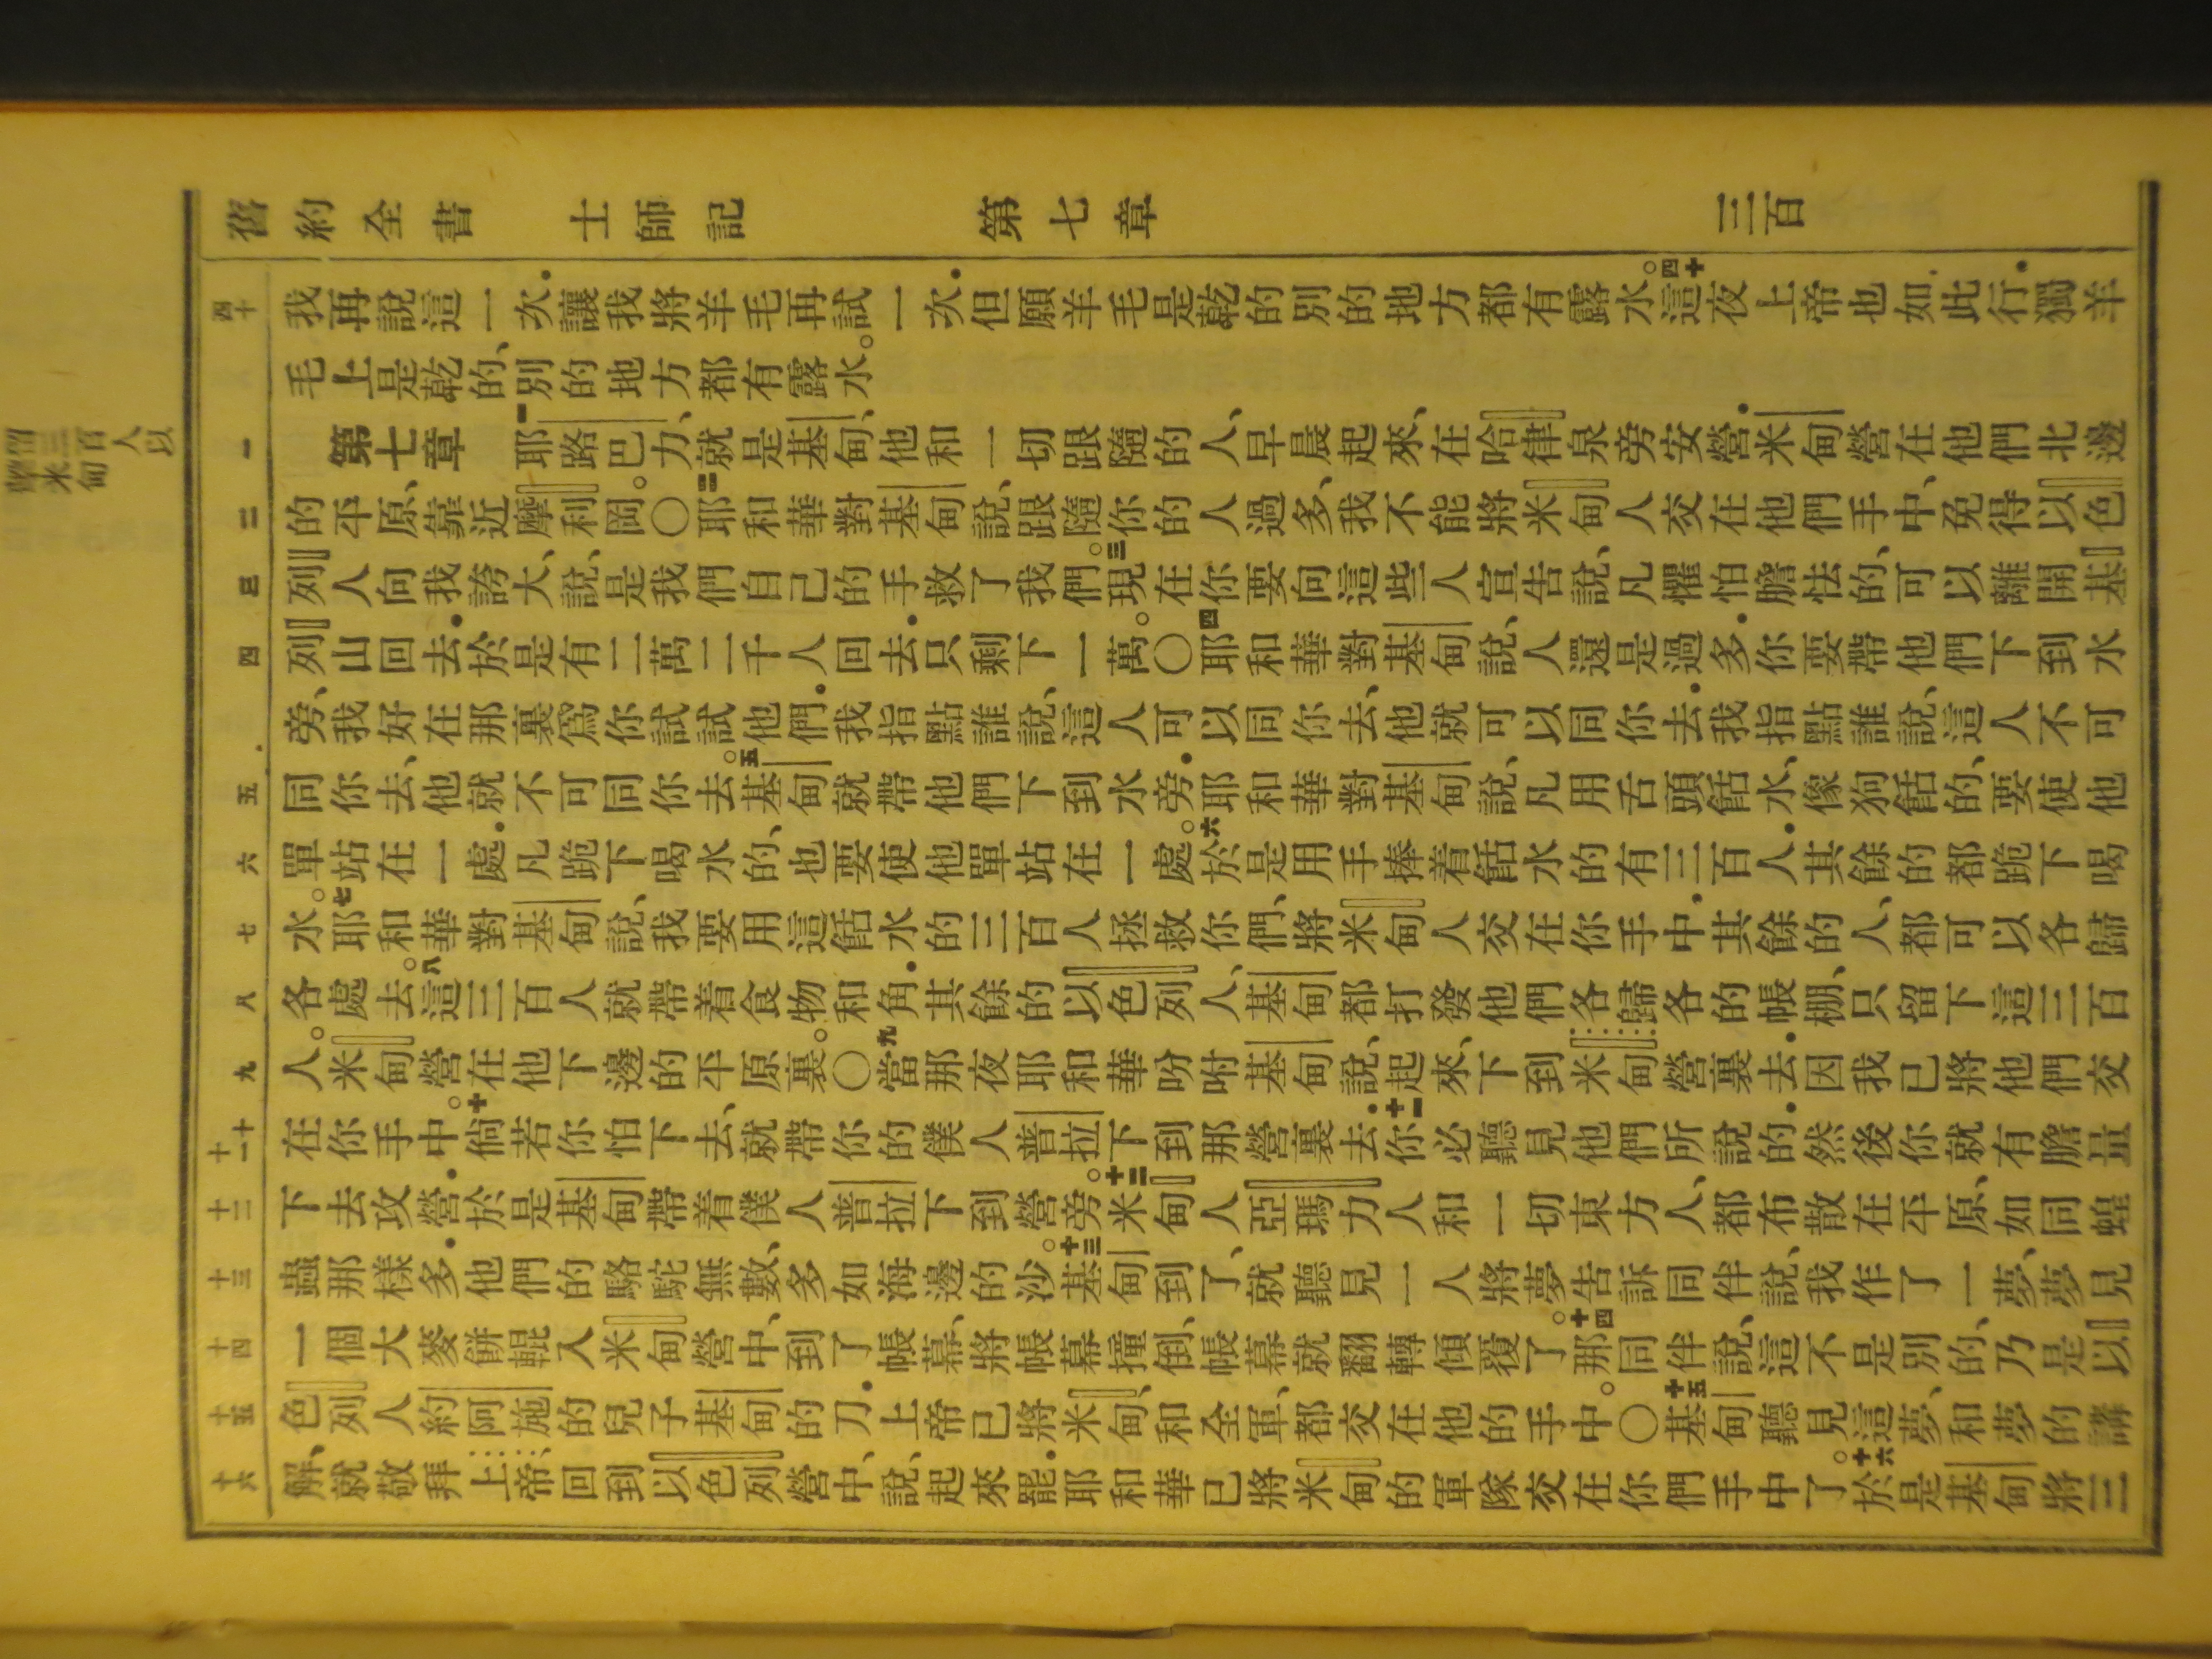 舊約全書 士師記 第七章 三百
四十
我再說這一次．讓我將羊毛再試一次．但願羊毛是乾的別的地方都有露水。四十這夜上帝也如此行．獨羊
毛上是乾的、別的地方都有露水。
一
第七章 一耶路巴力、就是基甸、他和一切跟隨的人、早晨起來、在哈律泉旁安營．米甸營在他們北邊
二
的平原、靠近摩利岡。〇二耶和華對基甸說、跟隨你的人過多、我不能將米甸人交在他們手中、免得以色
三
列人向我誇大、說、是我們自己的手救了我們。三現在你要向這些人宣告說、凡懼怕膽怯的、可以離開基
四
列山回去．於是有二萬二千人回去．只剩下一萬。〇四耶和華對基甸說、人還是過多．你要帶他們下到水
旁、我好在那裏爲你試試他們．我指點誰說、這人可以同你去、他就可以同你去．我指點誰說、這人不可
五
同你去、他就不可同你去。五基甸就帶他們下到水旁．耶和華對基甸說、凡用舌頭餂水、像狗餂的、要使他
六
單站在一處．凡跪下喝水的、也要使他單站在一處。六於是用手捧着餂水的有三百人．其餘的都跪下喝
七
水。七耶和華對基甸說、我要用這餂水的三百人拯救你們、將米甸人交在你手中．其餘的人、都可以各歸
八
各處去。八這三百人就帶着食物和角．其餘的以色列人、基甸都打發他們各歸各的帳棚、只留下這三百
九
人。米甸營在他下邊的平原裏。〇九當那夜耶和華吩咐基甸說、起來、下到米甸營裏去．因我已將他們交
十
十一
在你手中。十倘若你怕下去、就帶你的僕人普拉下到那營裏去．十一你必聽見他們所說的．然後你就有膽量
十二
下去攻營．於是基甸帶着僕人普拉下到營旁。十二米甸人亞瑪力人和一切東方人、都布散在平原、如同蝗
十三
蟲那樣多．他們的駱駝無數、多如海邊的沙。十三基甸到了、就聽見一人將夢告訴同伴說、我作了一夢、夢見
十四
一個大麥餅輥入米甸營中、到了帳幕、將帳幕撞倒、帳幕就翻轉傾覆了。十四那同伴說、這不是別的、乃是以
十五
色列人約阿施的兒子基甸的刀．上帝已將米甸、和全軍、都交在他的手中。〇十五基甸聽見這夢、和夢的講
十六
解、就敬拜上帝、回到以色列營中、說、起來罷．耶和華已將米甸的軍隊交在你們手中了。十六於是基甸將三